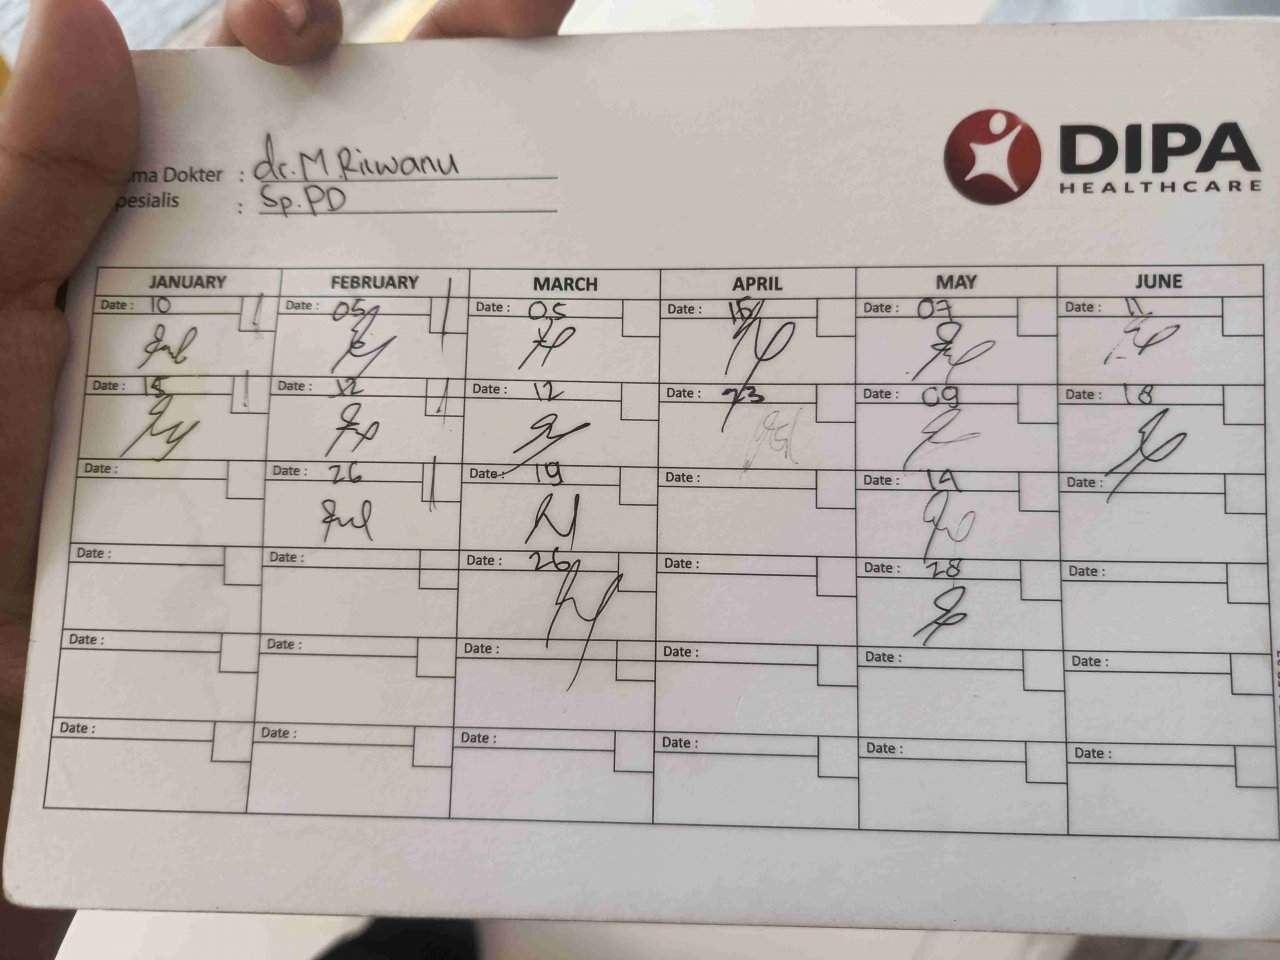 DIPA
HEALTHCARE
ma Dokter : dr. M. Riswanu
pesialis : Sp.PD
JANUARY FEBRUARY MARCH APRIL MAY JUNE
Date : 10 Date : 05 Date : 05 Date : 15 Date : 07 Date : 11
Date : 15 Date : 12 Date : 12 Date : 23 Date : 09 Date : 18
Date : Date : 26 Date : 19 Date : Date : 14 Date :
Date : Date : Date : 26 Date : Date : 28 Date :
Date : Date : Date : Date : Date : Date :
Date : Date : Date : Date : Date : Date :